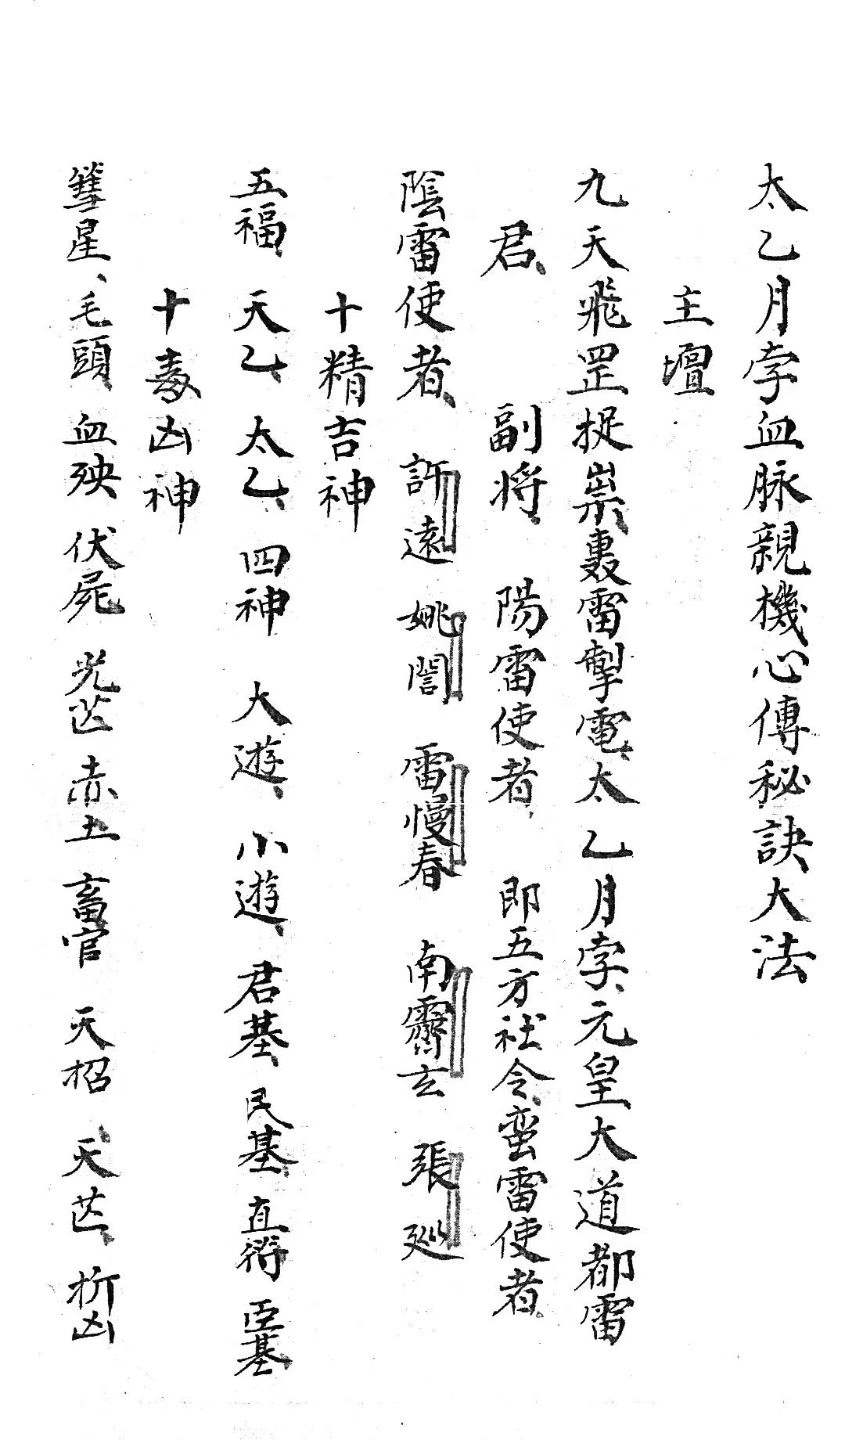 太乙月孛血脉親機心傳秘訣大法
主壇
九天飛罡捉祟、轟雷掣電、太乙月孛、元皇大道都雷
君、　副将、　陽雷使者、　即五方社令、蛮雷使者、
陰雷使者、　許遠　姚訔　雷慢春　南霽玄　張巡
十精吉神
五福、　天乙、太乙、四神　大遊、小遊、君基、民基、直符　臣基、
十毒凶神
彗星、毛頭、血殃、伏屍　光芒、赤土　畜官　天招、天芒、折凶